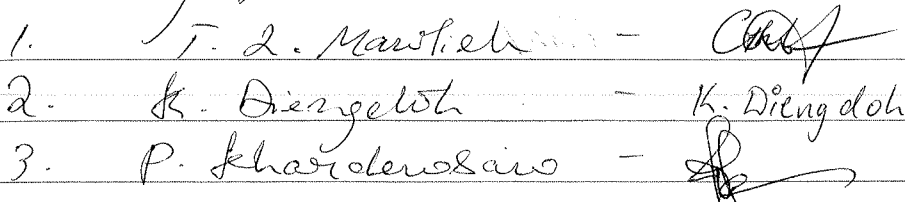 1. T. L. Mawlieh -
2. K. Diengdoh - K. Diengdoh
3. P. Khardewsaw -